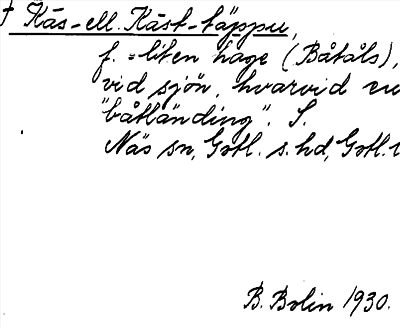 † Käs- ell. Käst-täppu,
f. = liten hage (Båtåls),
vid sjön, hvarvid en
"båtländing". S.
Näs sn, Gotl. s. hd, Gotl. l
B. Bolin 1930.